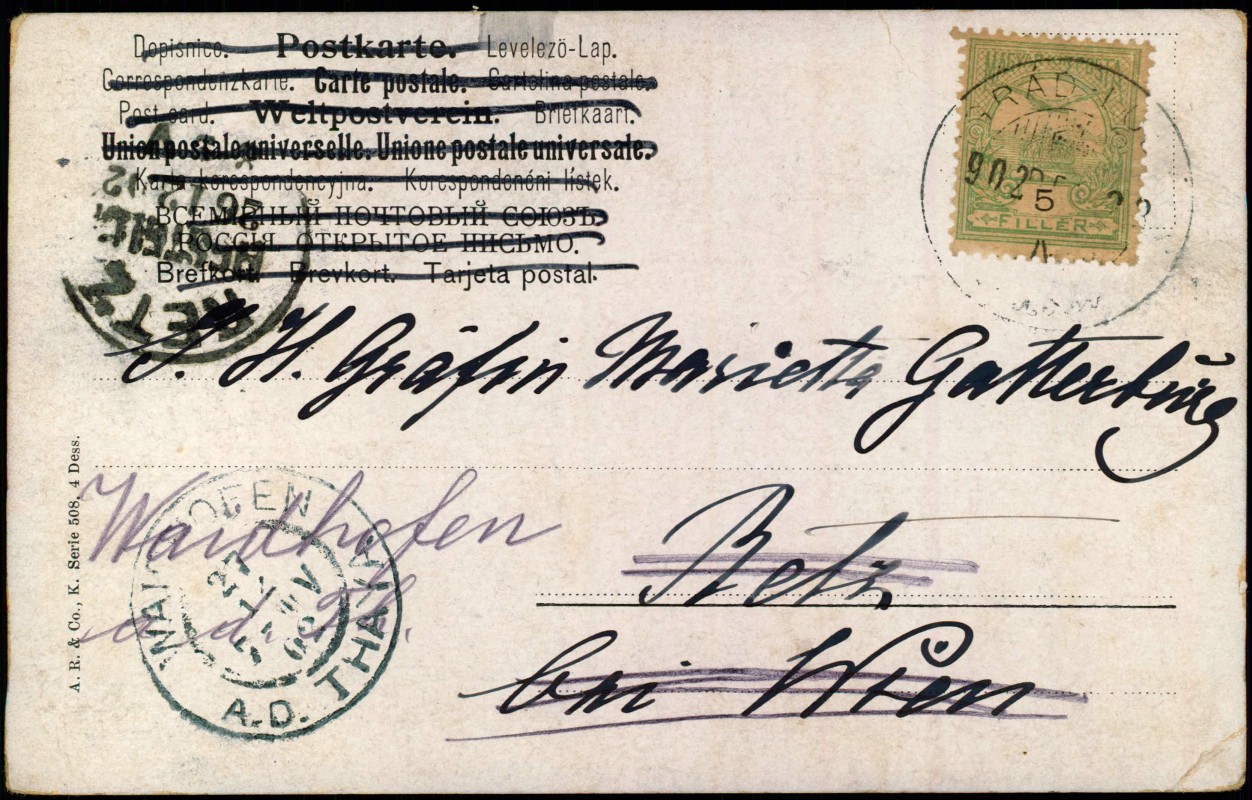 Dopisnice. Postkarte. Levelező-Lap.
Correspondenzkarte. Carte postale. Cartolina postale.
Post card. Weltpostverein. Briefkaart.
Union postale universelle. Unione postale universale.
Karta korespondencyjna. Korespondenční lístek.
ВСЕМІРНЫЙ ПОЧТОВЫЙ СОЮЗЪ.
РОССІЯ ОТКРЫТОЕ ПИСЬМО.
Brefkort. Brevkort. Tarjeta postal.
MAGYAR POSTA
5
FILLÉR
RETZ
Gräfin Mariette Gatterburg
Retz
bei Wien
Waidhofen
a. d. Th.
WAIDHOFEN
27
V
02
A.D. THAYA
A. R. & Co., K. Serie 508, 4 Dess.